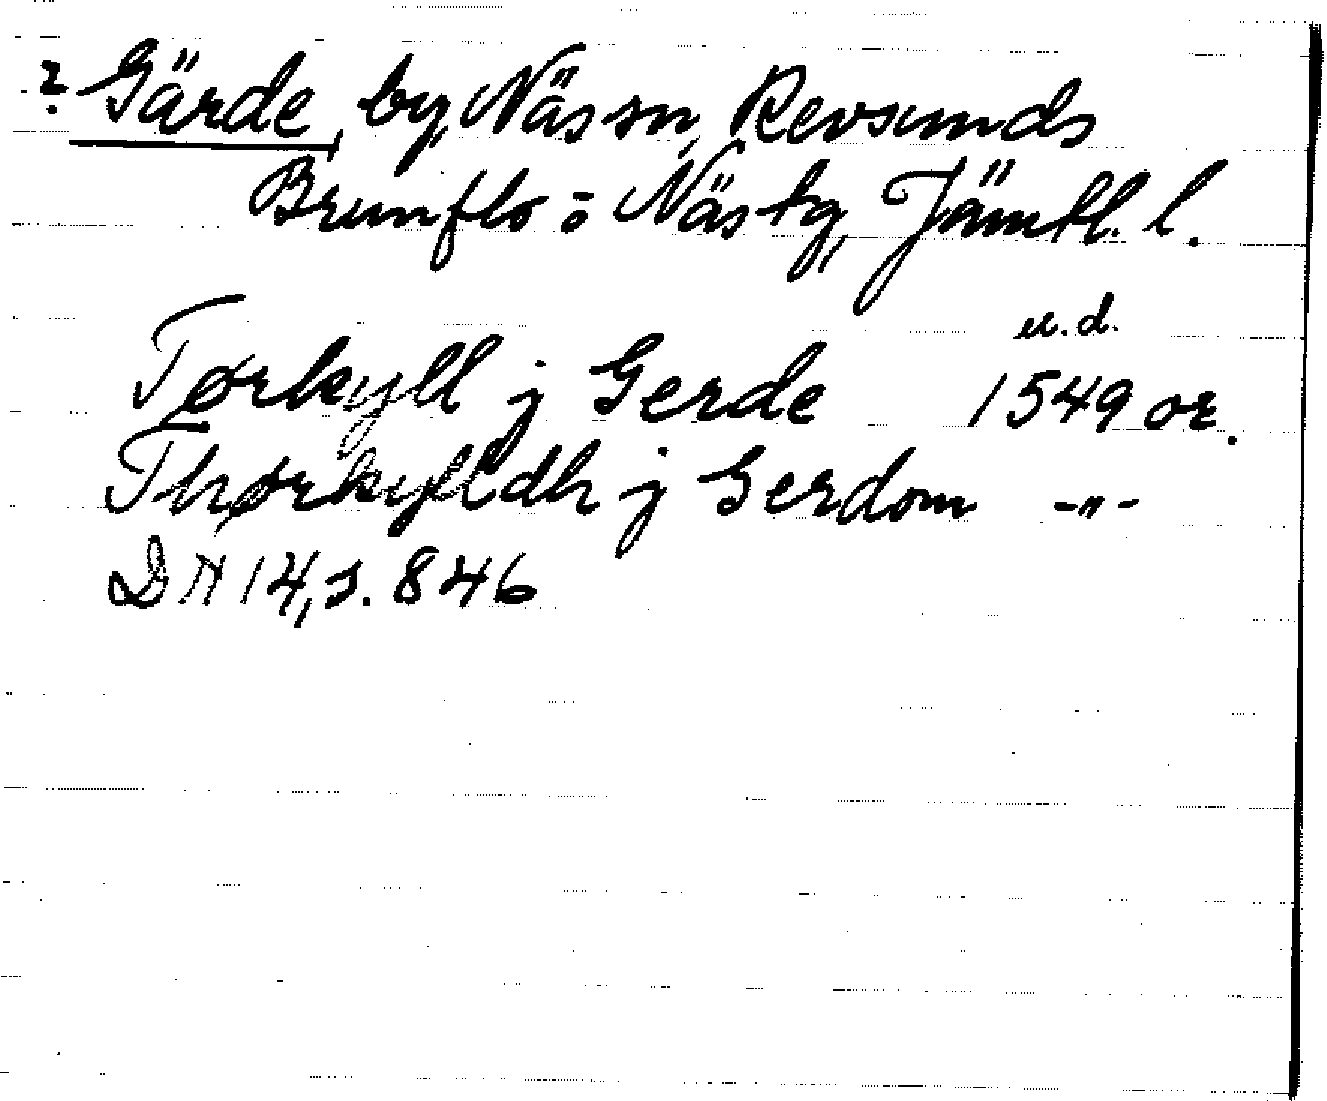 ? Gärde, by, Näs sn, Revsunds
Brunflo o Näs tg, Jämtl. l.
u.d.
Tørkyll j Gerde 1549 or.
Thørkylldh j Gerdom -"-
DN 14, s. 846